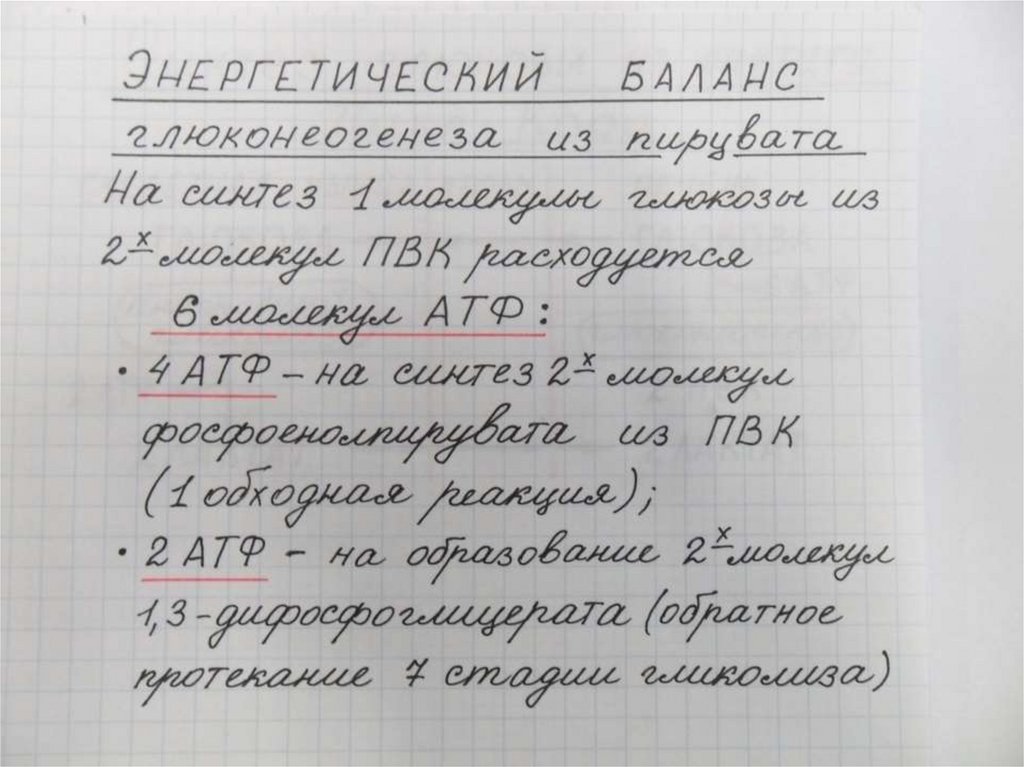 ЭНЕРГЕТИЧЕСКИЙ БАЛАНС
глюконеогенеза из пирувата
На синтез 1 молекулы глюкозы из
2х молекул ПВК расходуется
6 молекул АТФ:
• 4 АТФ – на синтез 2х молекул
фосфоенолпирувата из ПВК
(1 обходная реакция);
• 2 АТФ – на образование 2х молекул
1,3-дифосфоглицерата (обратное
протекание 7 стадии гликолиза)